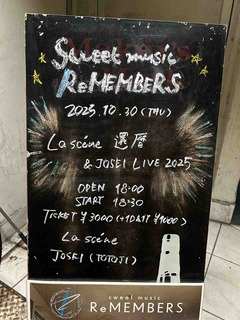 Sweet music
ReMEMBERS
2025.10.30 (THU)
La scéne 還暦
& JOSEI LIVE 2025
OPEN 18:00
START 18:30
TICKET ¥3000 (+1D
La scéne
JOSEI
sweet music
ReMEMBERS